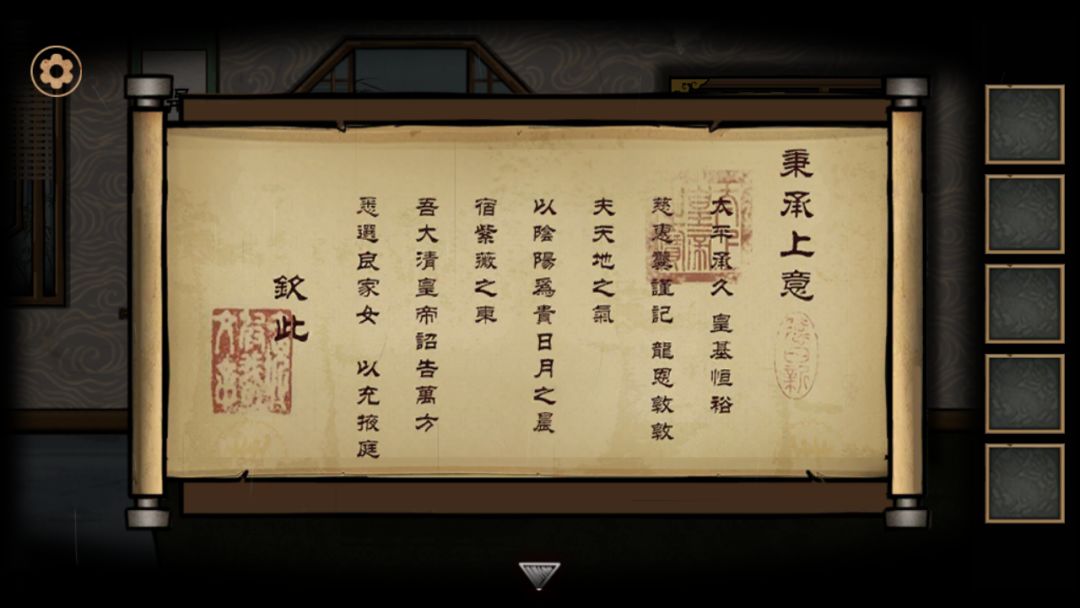 秉承上意
太平承久 皇基恒裕
慈惠 謹記 龍恩敦敦
夫天地之氣
以陰陽爲貴日月之晨
宿紫薇之東
吾大清皇帝詔告萬方
悉選良家女 以充掖庭
欽此